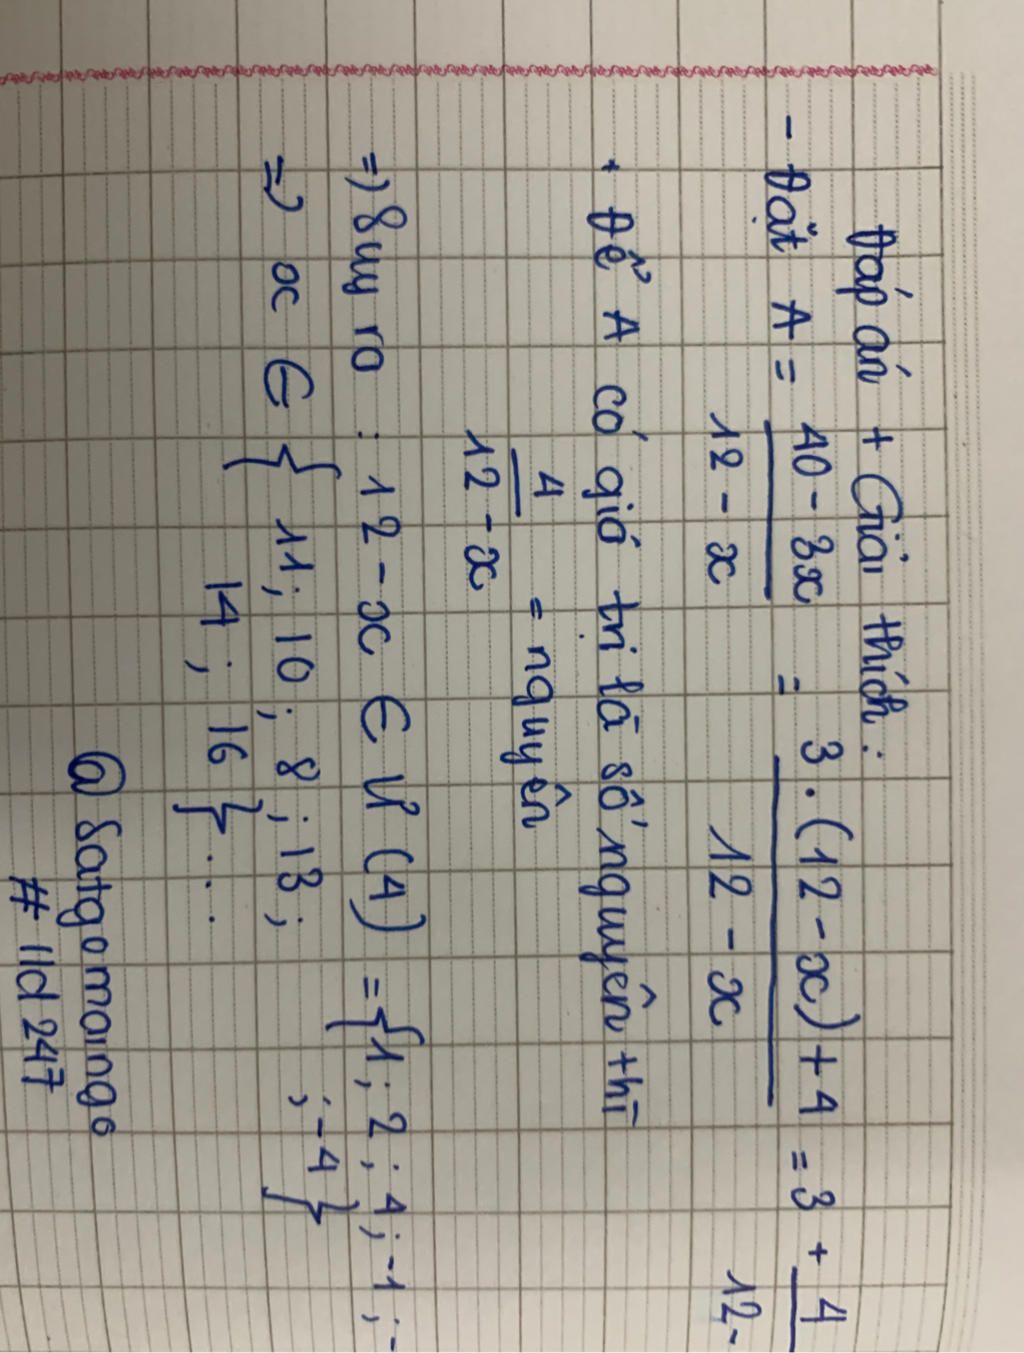 Đáp án + Giải thích:
- Đặt A = 40 - 3x / 12 - x = 3.(12 - x) + 4 / 12 - x = 3 + 4 / 12 -
+ Để A có gió trị là số nguyên thì
4 / 12 - x = nguyên
=) Suy ro : 12 - x ∈ Ư (4) = {1; 2; 4; -1; -
; -4}
=> x ∈ { 11; 10; 8; 13;
14; 16 } ...
@ Satgomaingo
# 11d 247